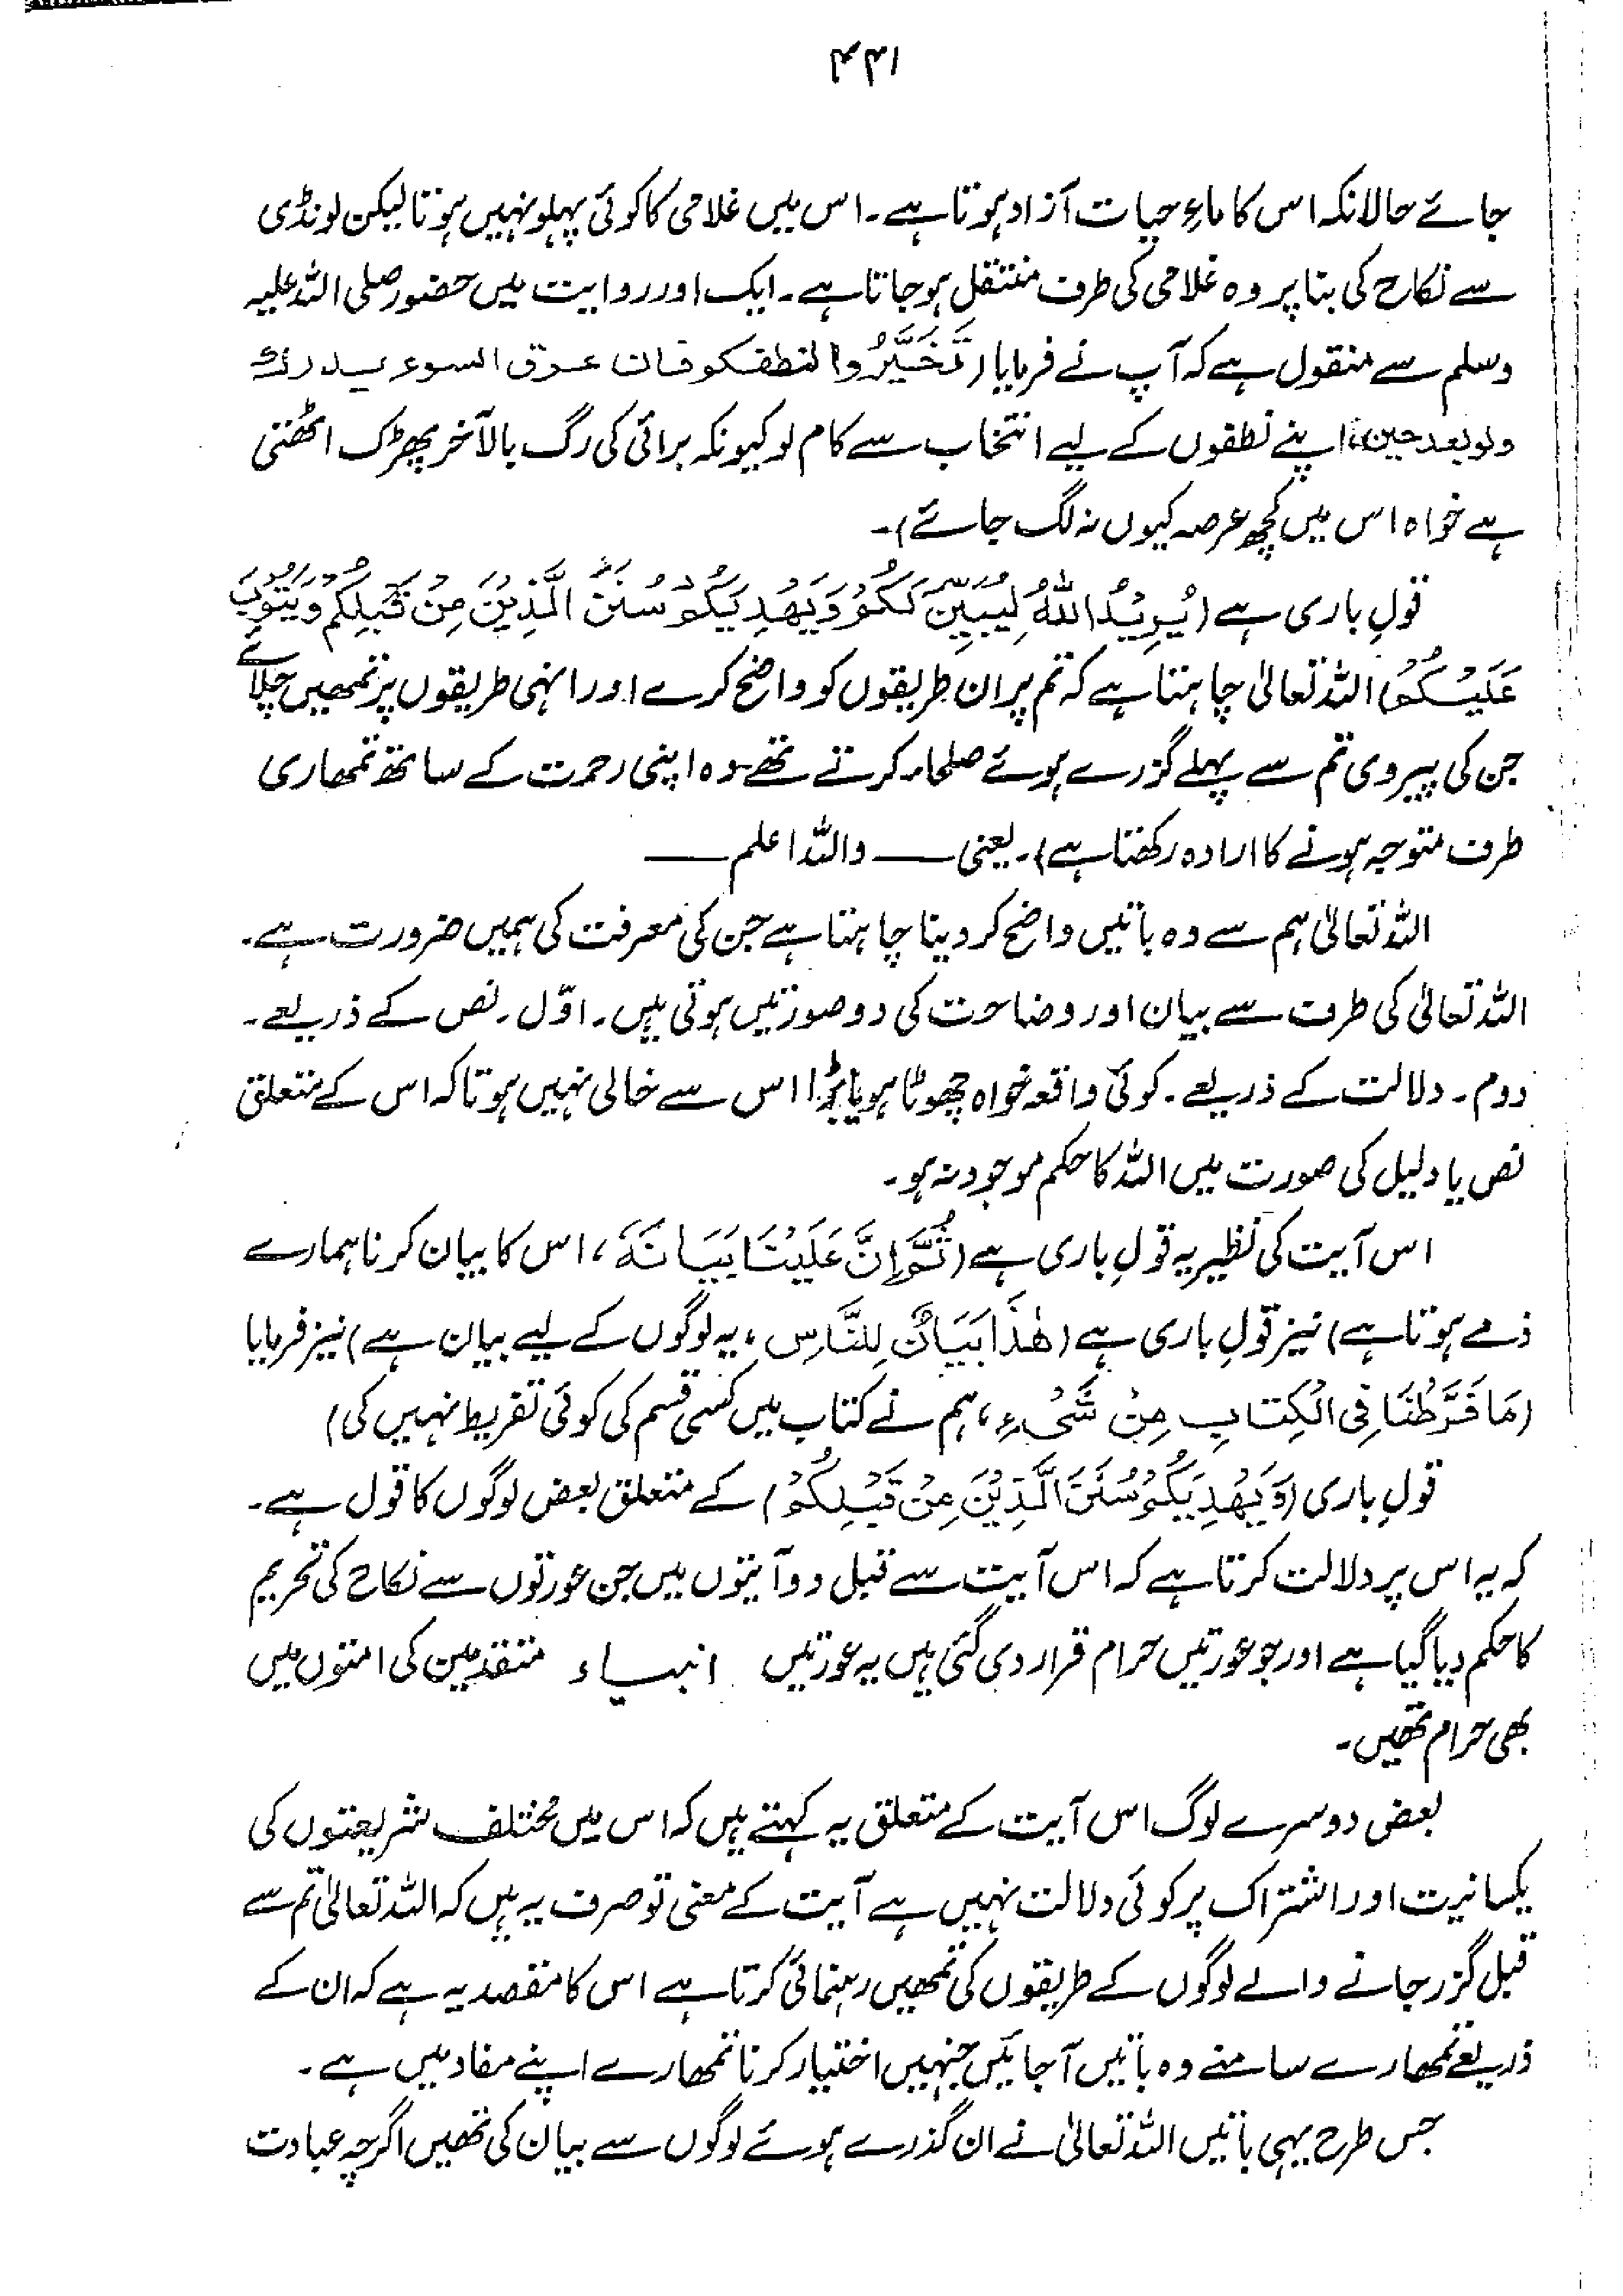 ۴۳۱
جائے حالانکہ اس کا ماءِ حیات آزاد ہوتا ہے۔ اس میں غلامی کا کوئی پہلو نہیں ہوتا لیکن لونڈی
سے نکاح کی بنا پر وہ غلامی کی طرف منتقل ہو جاتا ہے۔ ایک اور روایت میں حضور صلی اللہ علیہ
وسلم سے منقول ہے کہ آپ نے فرمایا (تَخَیَّرُوا لنطفکم فان عرق السوء یدرك
ولو بعد حین، اپنے نطفوں کے لیے انتخاب سے کام لو کیونکہ برائی کی رگ بالآخر پھڑک اٹھتی
ہے خواہ اس میں کچھ عرصہ کیوں نہ لگ جائے)۔
قولِ باری ہے (یُرِیْدُ اللّٰهُ لِیُبَیِّنَ لَکُمْ وَیَهْدِیَکُمْ سُنَنَ الَّذِیْنَ مِنْ قَبْلِکُمْ وَیَتُوْبَ
عَلَیْکُمْ، اللہ تعالیٰ چاہتا ہے کہ تم پر ان طریقوں کو واضح کرے اور انہی طریقوں پر تمھیں چلائے
جن کی پیروی تم سے پہلے گزرے ہوئے صلحاء کرتے تھے۔ وہ اپنی رحمت کے ساتھ تمھاری
طرف متوجہ ہونے کا ارادہ رکھتا ہے)۔ یعنی —— واللہ اعلم ——
اللہ تعالیٰ ہم سے وہ باتیں واضح کر دینا چاہتا ہے جن کی معرفت کی ہمیں ضرورت ہے۔
اللہ تعالیٰ کی طرف سے بیان اور وضاحت کی دو صورتیں ہوتی ہیں۔ اوّل۔ نص کے ذریعے۔
دوم۔ دلالت کے ذریعے۔ کوئی واقعہ خواہ چھوٹا ہو یا بڑا اس سے خالی نہیں ہوتا کہ اس کے متعلق
نص یا دلیل کی صورت میں اللہ کا حکم موجود نہ ہو۔
اس آیت کی نظیر یہ قولِ باری ہے (ثُمَّ اِنَّ عَلَیْنَا بَیَانَهٗ، اس کا بیان کرنا ہمارے
ذمے ہوتا ہے) نیز قولِ باری ہے (هٰذَا بَیَانٌ لِلنَّاسِ، یہ لوگوں کے لیے بیان ہے) نیز فرمایا
(مَا فَرَّطْنَا فِی الْکِتَابِ مِنْ شَیْءٍ، ہم نے کتاب میں کسی قسم کی کوئی تفریط نہیں کی)
قولِ باری (وَیَهْدِیَکُمْ سُنَنَ الَّذِیْنَ مِنْ قَبْلِکُمْ) کے متعلق بعض لوگوں کا قول ہے۔
کہ یہ اس پر دلالت کرتا ہے کہ اس آیت سے قبل دو آیتوں میں جن عورتوں سے نکاح کی تحریم
کا حکم دیا گیا ہے اور جو عورتیں حرام قرار دی گئی ہیں یہ عورتیں انبیاء متقدمین کی امتوں میں
بھی حرام تھیں۔
بعض دوسرے لوگ اس آیت کے متعلق یہ کہتے ہیں کہ اس میں مختلف شریعتوں کی
یکسانیت اور اشتراک پر کوئی دلالت نہیں ہے آیت کے معنی تو صرف یہ ہیں کہ اللہ تعالیٰ تم سے
قبل گزر جانے والے لوگوں کے طریقوں کی تمھیں رہنمائی کرتا ہے اس کا مقصد یہ ہے کہ ان کے
ذریعے تمھارے سامنے وہ باتیں آ جائیں جنہیں اختیار کرنا تمھارے اپنے مفاد میں ہے۔
جس طرح یہی باتیں اللہ تعالیٰ نے ان گذرے ہوئے لوگوں سے بیان کی تھیں اگرچہ عبادت